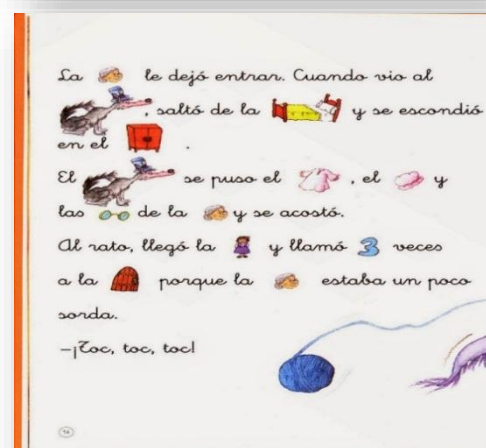 La le dejó entrar. Cuando vio al
, saltó de la y se escondió
en el .
El se puso el , el y
las de la y se acostó.
Al rato, llegó la y llamó 3 veces
a la porque la estaba un poco
sorda.
–¡Toc, toc, toc!
14